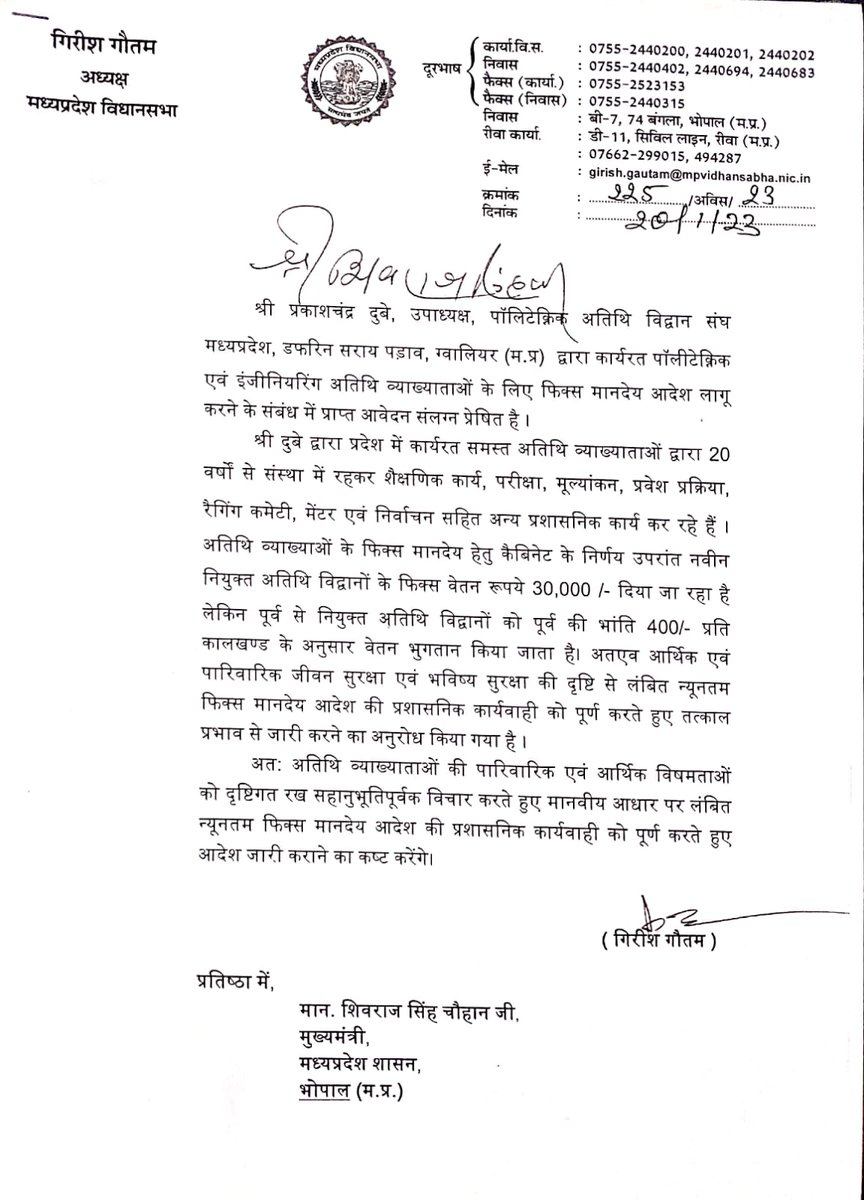 गिरीश गौतम
अध्यक्ष
मध्यप्रदेश विधानसभा
मध्यप्रदेश विधानसभा
सत्यमेव जयते
दूरभाष
कार्या.वि.स. : 0755-2440200, 2440201, 2440202
निवास : 0755-2440402, 2440694, 2440683
फैक्स (कार्या.) : 0755-2523153
फैक्स (निवास) : 0755-2440315
निवास : बी-7, 74 बंगला, भोपाल (म.प्र.)
रीवा कार्या. : डी-11, सिविल लाइन, रीवा (म.प्र.)
: 07662-299015, 494287
ई-मेल : girish.gautam@mpvidhansabha.nic.in
क्रमांक : 225 /अविस/ 23
दिनांक : 20/1/23
श्री शिवराज सिंह जी
श्री प्रकाशचंद्र दुबे, उपाध्यक्ष, पॉलिटेक्निक अतिथि विद्वान संघ
मध्यप्रदेश, डफरिन सराय पड़ाव, ग्वालियर (म.प्र) द्वारा कार्यरत पॉलीटेक्निक
एवं इंजीनियरिंग अतिथि व्याख्याताओं के लिए फिक्स मानदेय आदेश लागू
करने के संबंध में प्राप्त आवेदन संलग्न प्रेषित है ।
श्री दुबे द्वारा प्रदेश में कार्यरत समस्त अतिथि व्याख्याताओं द्वारा 20
वर्षों से संस्था में रहकर शैक्षणिक कार्य, परीक्षा, मूल्यांकन, प्रवेश प्रक्रिया,
रैगिंग कमेटी, मेंटर एवं निर्वाचन सहित अन्य प्रशासनिक कार्य कर रहे हैं ।
अतिथि व्याख्याओं के फिक्स मानदेय हेतु कैबिनेट के निर्णय उपरांत नवीन
नियुक्त अतिथि विद्वानों के फिक्स वेतन रूपये 30,000 /- दिया जा रहा है
लेकिन पूर्व से नियुक्त अतिथि विद्वानों को पूर्व की भांति 400/- प्रति
कालखण्ड के अनुसार वेतन भुगतान किया जाता है। अतएव आर्थिक एवं
पारिवारिक जीवन सुरक्षा एवं भविष्य सुरक्षा की दृष्टि से लंबित न्यूनतम
फिक्स मानदेय आदेश की प्रशासनिक कार्यवाही को पूर्ण करते हुए तत्काल
प्रभाव से जारी करने का अनुरोध किया गया है ।
अत: अतिथि व्याख्याताओं की पारिवारिक एवं आर्थिक विषमताओं
को दृष्टिगत रख सहानुभूतिपूर्वक विचार करते हुए मानवीय आधार पर लंबित
न्यूनतम फिक्स मानदेय आदेश की प्रशासनिक कार्यवाही को पूर्ण करते हुए
आदेश जारी कराने का कष्ट करेंगे।
( गिरीश गौतम )
प्रतिष्ठा में,
मान. शिवराज सिंह चौहान जी,
मुख्यमंत्री,
मध्यप्रदेश शासन,
भोपाल (म.प्र.)